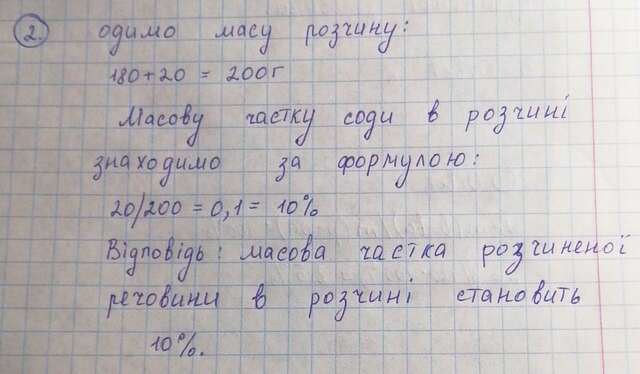 2. одимо масу розчину:
180+20 = 200г
Масову частку соди в розчині
знаходимо за формулою:
20/200 = 0,1 = 10%
Відповідь: масова частка розчиненої
речовини в розчині становить
10%.